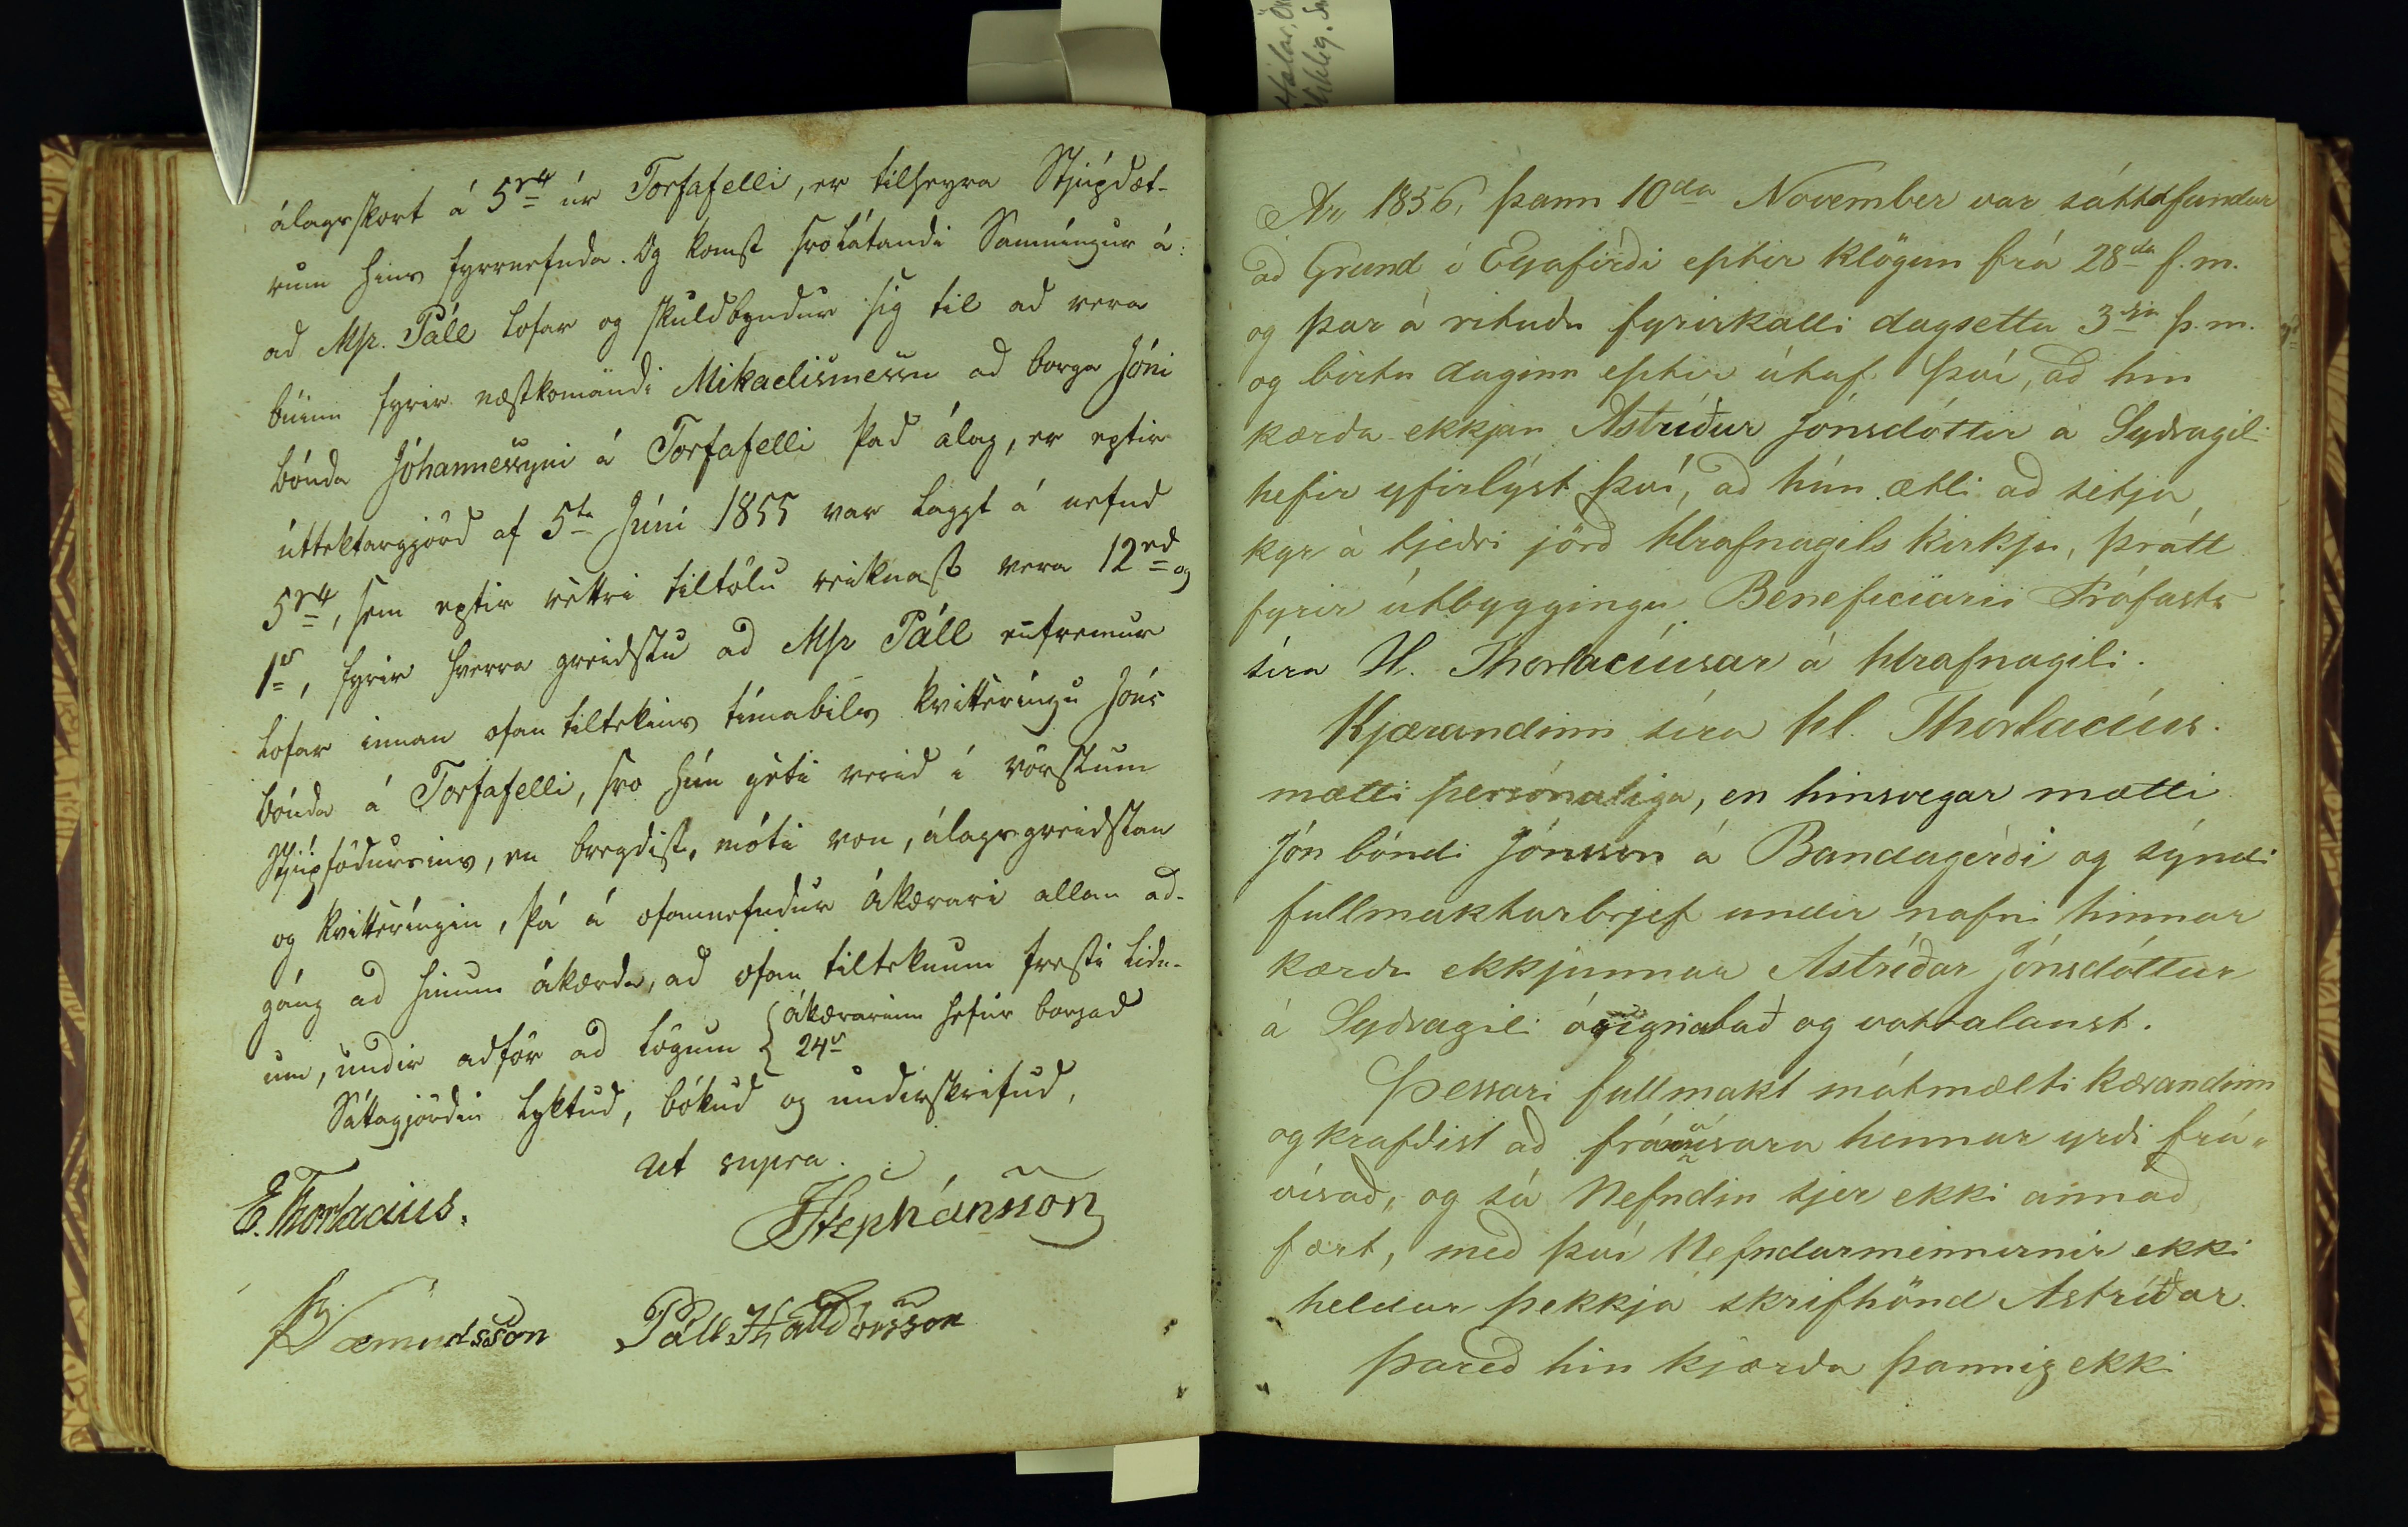 álagsskort á 5 r# úr Torfafelli, er tilheyra Stjúpdæt-
rum hins fyrrnefnda. Og komst svolátandi Samníngur á:
ad Msr. Páll lofar og skuldbyndur sig til ad vera
búinn fyrir næstkomandi Mikaelismessu ad borga Jóni
bónda Jóhannessyni á Torfafelli það álag, er eptir
úttektargjörd af 5ta Júní 1855 var lagt á nefnd
5 r#, sem eptir réttri tiltölu reiknast vera 12 rd og
1 s, fyrir hverra greidslu ad Msr Páll ennfremur
lofar innan ofantiltekins tímabils kvitteríngu Jóns
bónda á Torfafelli, svo hún géti verid í vörslum
Stjúpfödursins, en bregdist, móti von, álagsgreidslan
og kvitteríngin, þá á ofannefndur ákærari allan ad-
gáng ad hinum ákærda, ad ofan tilteknum fresti lidn-
um, undir adför ad lögum { ákærarinn hefur borgad
24 s
Sáttagjördin lyktud, bókud og undirskrifud,
ut supra.
E. Thorlacius.
JStephánsson
Sæmundsson Páll Halldórsson
Hólar, 
Ár 1856, þann 10da November var sáttafundur
að Grund í Eyafirði eptir klögun frá 28da f.m.
og þar á rituðu fyrirkalli dagsettu 3ja þ.m.
og birtu daginn eptir útaf því, að hin
kærða ekkjan Astríður Jónsdóttir á Syðragili
hefir yfirlýst því, að hún ætli að setja
kyr á tjeðri jörð Hrafnagils kirkju, þrátt
fyrir útbyggingu Beneficiarii Prófasts
síra H. Thorlacíusar á Hrafnagili.
Kjærandinn síra Hl. Thorlacíus.
mætti persónuliga, en hinsvegar mætti
Jón bóndi Jónsson á Bandagerði og sýndi
fullmakturbrjef undir nafni hinnar
kærðu ekkjunnar Astríðar Jónsdóttur
á Syðragili ósignalað og vottalaust.
Þessari fullmakt mótmælti kærandinn
og krafðist að frávísara hennar yrði frá-
vísað, og sá Nefndin sjer ekki annað
fært, með því Nefndarmennirnir ekki
heldur þekkja skrifhönd Astríðar.
Þareð hin kjærða þannig ekki